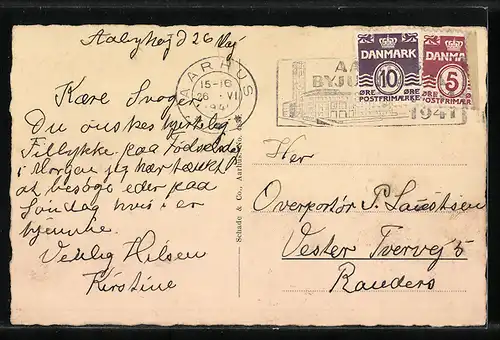 Aabyhøj d 26 Maj
Kære Svoger
Du ønskes hjertelig
Tillykke paa Fødselsdag
i Morgen jeg har tænkt
at besøge eder paa
Søndag hvis i er
hjemme.
Venlig Hilsen
Kirstine
AARHUS
15-16
26 VI
1941
AA
BYJU
1941
DANMARK
10
ØRE ØRE
POSTFRIMÆRKE
DANMA
5
ØRE ØRE
POSTFRIMÆR
Schade & Co., Aarhus. No.
Her
Overportør P.
Vester Tvervej 5
Randers